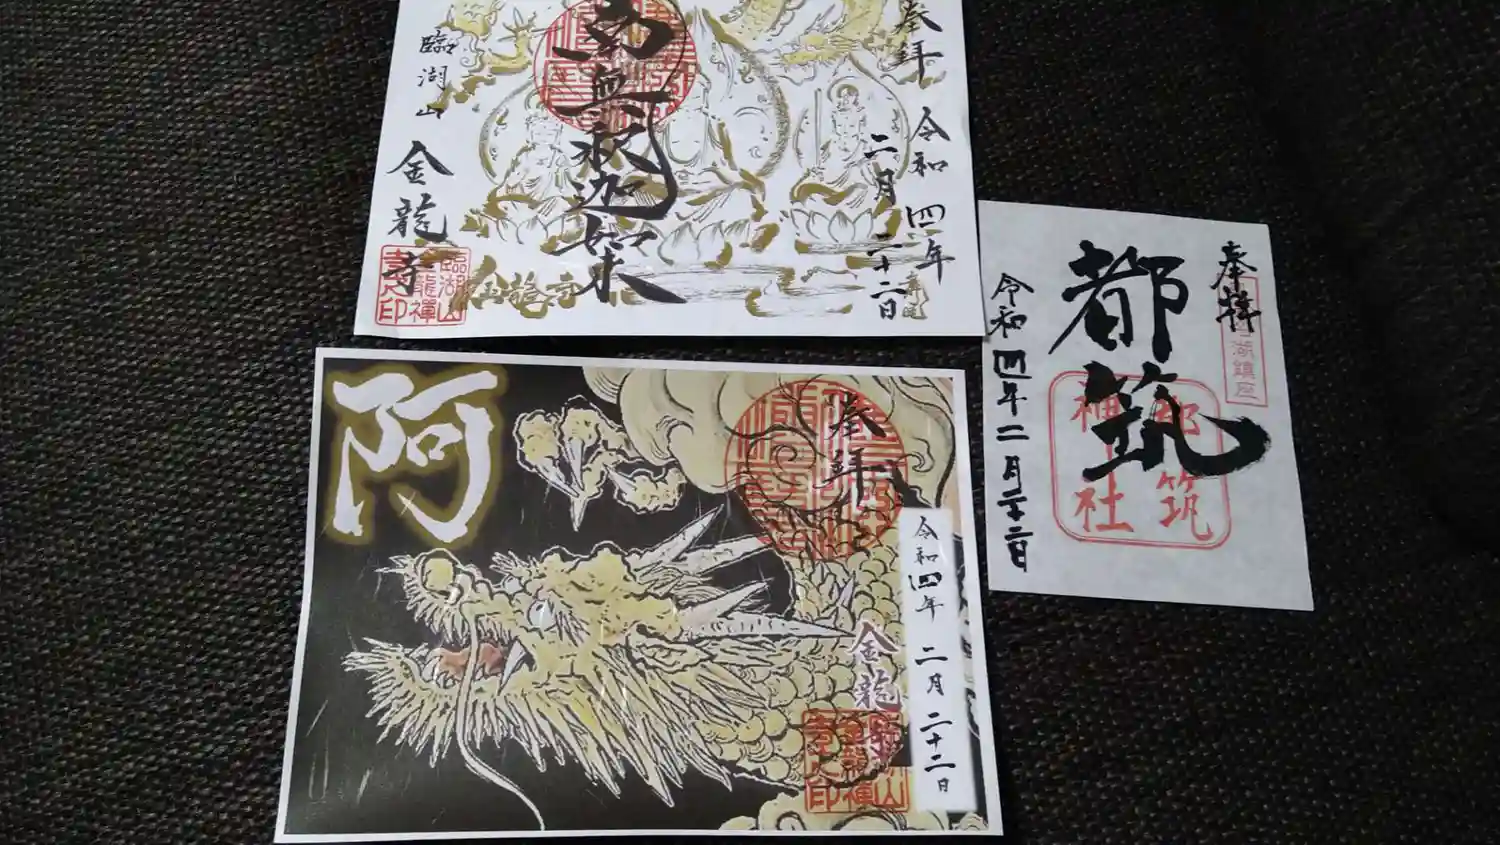 奉拝
令和四年
二月二十二日
南無釈迦如来
臨湖山
金龍寺
奉拝
湖鎮座
都筑
都筑
神社
令和四年二月二十二日
阿
奉拝
令和四年 二月 二十二日
金龍